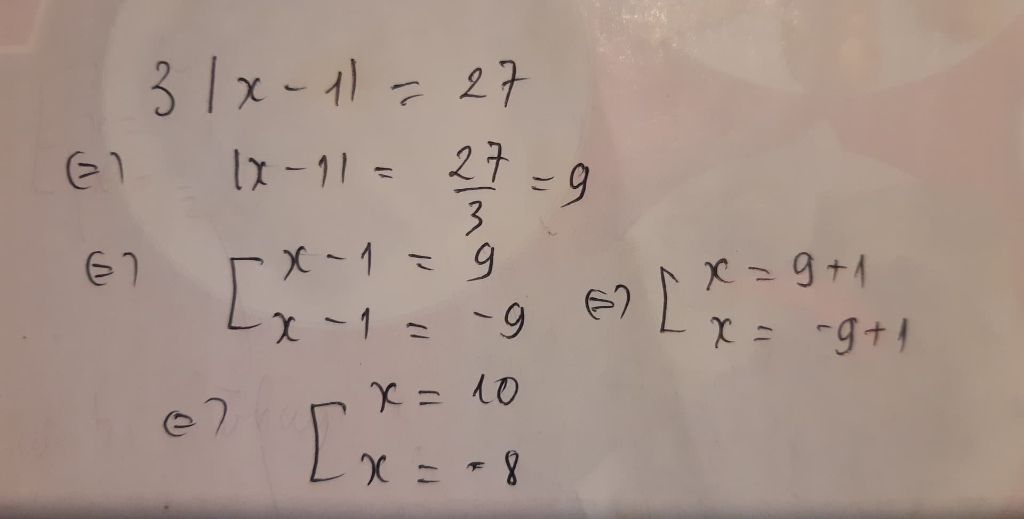 3 |x - 1| = 27
⇔ |x - 1| = 27/3 = 9
⇔ [ x - 1 = 9
x - 1 = -9
⇔ [ x = 9 + 1
x = -9 + 1
⇔ [ x = 10
x = -8